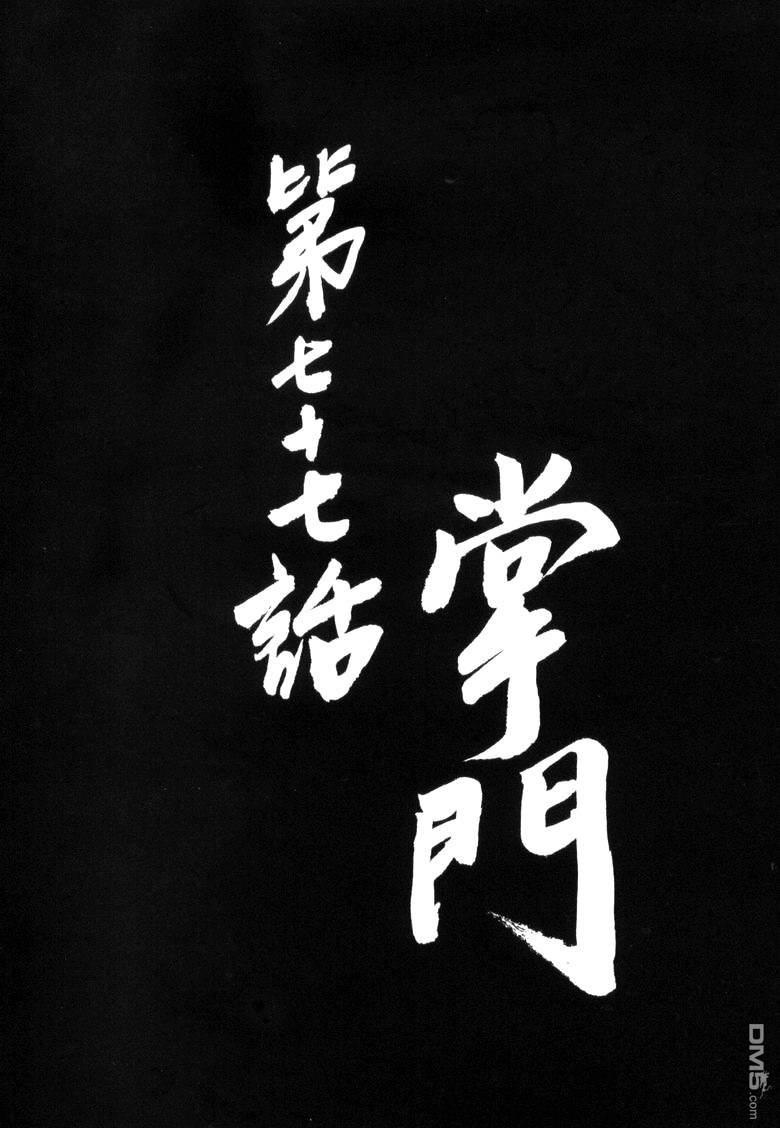 掌門
第七十七話
DM5.com